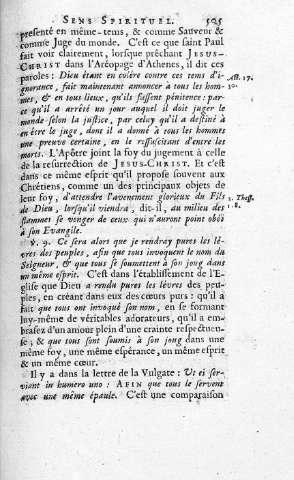 SENS SPIRITUEL. 505
presenté en même-tems, & comme Sauveur &
comme Juge du monde. C'est ce que saint Paul
fait voir clairement, lorsque prêchant JESUS-
CHRIST dans l'Aréopage d'Athenes, il dit ces
paroles : Dieu étant en colére contre ces tems d'i- Act. 17.
gnorance, fait maintenant annoncer à tous les hom- 30.
mes, & en tous lieux, qu'ils fassent pénitence : par-
ce qu'il a arrêté un jour auquel il doit juger le
monde selon la justice, par celuy qu'il a destiné à
en être le juge, dont il a donné à tous les hommes
une preuve certaine, en le ressuscitant d'entre les
morts. L'Apôtre joint la foy du jugement à celle
de la resurrection de JESUS-CHRIST. Et c'est
dans ce même esprit qu'il propose souvent aux
Chrétiens, comme un des principaux objets de
leur foy, d'attendre l'avenement glorieux du Fils 2. Thess.
de Dieu, lorsqu'il viendra, dit-il, au milieu des 1. 8.
flammes se venger de ceux qui n'auront point obéi
à son Evangile.
℣. 9. Ce sera alors que je rendray pures les lé-
vres des peuples, afin que tous invoquent le nom du
Seigneur, & que tous se soumettent à son joug dans
un même esprit. C'est dans l'établissement de l'E-
glise que Dieu a rendu pures les lévres des peu-
ples, en créant dans eux des cœurs purs : qu'il a
fait que tous ont invoqué son nom, en se formant
luy-même de véritables adorateurs, qu'il a em-
brasez d'un amour plein d'une crainte respectueu-
se ; & que tous sont soumis à son joug dans une
même foy, une même espérance, un même esprit
& un même cœur.
Il y a dans la lettre de la Vulgate : Ut ei ser-
viant in humero uno : AFIN que tous le servent
avec une même épaule. C'est une comparaison